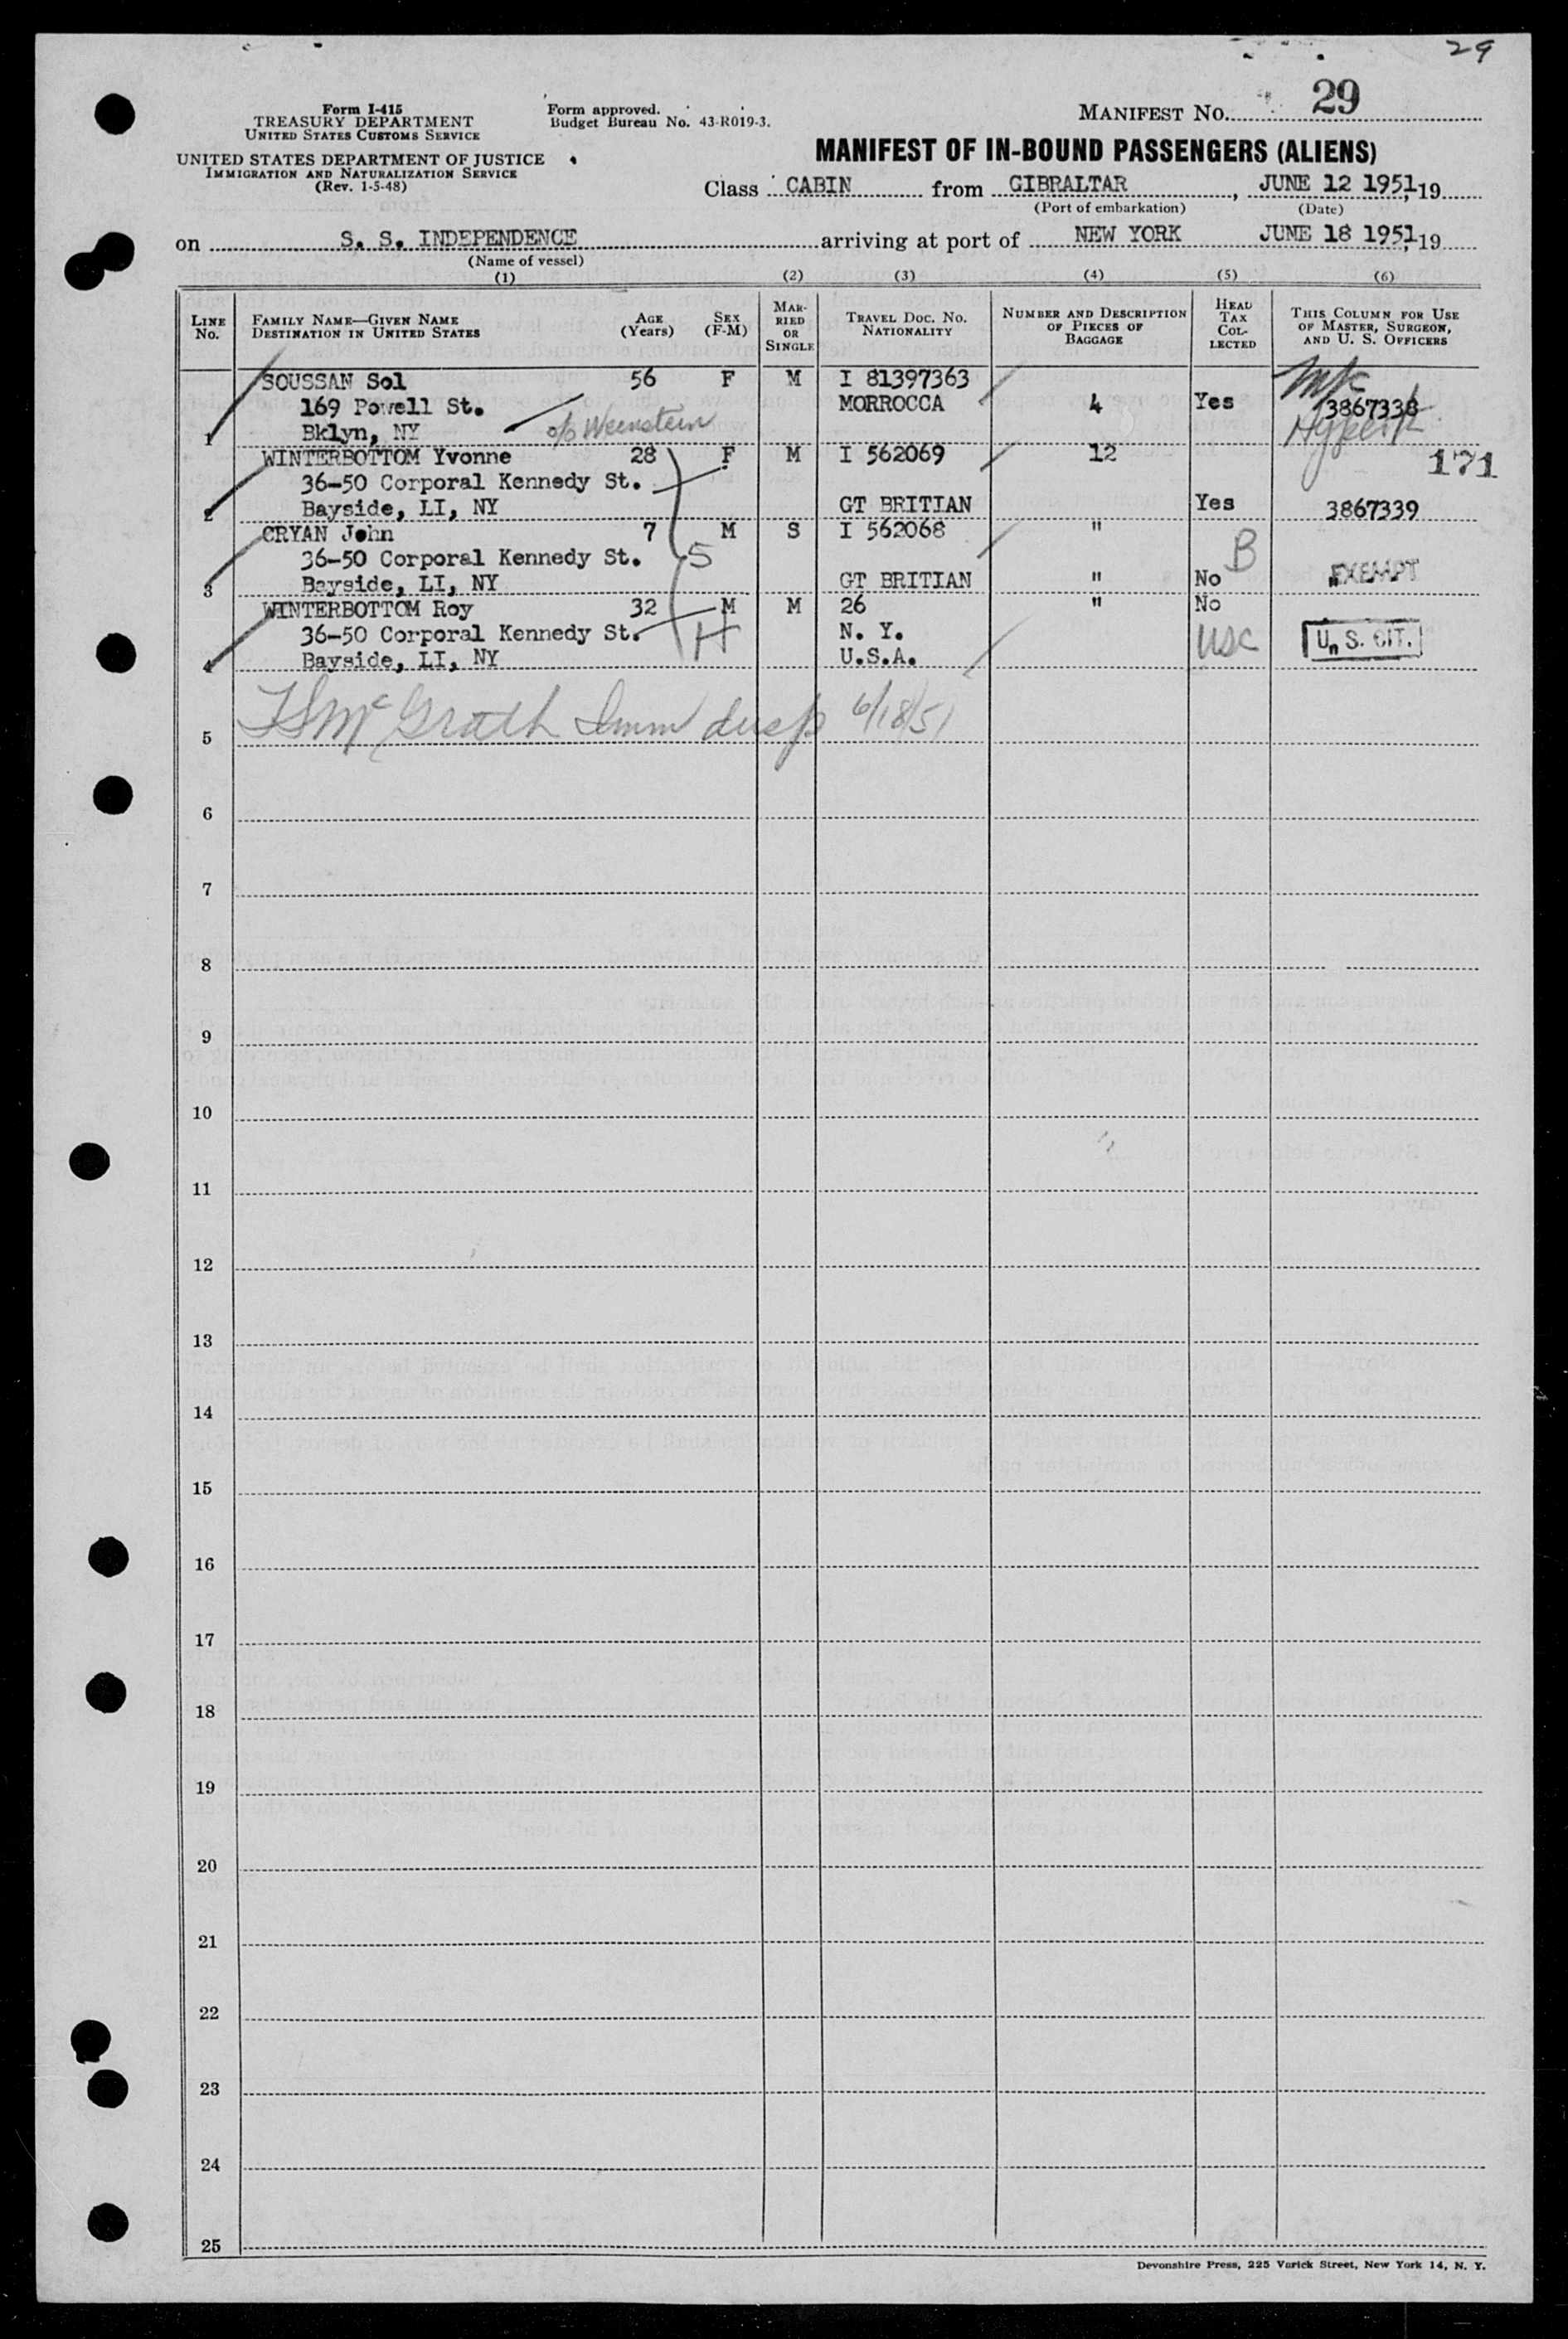 29
Form I-415
TREASURY DEPARTMENT
UNITED STATES CUSTOMS SERVICE
UNITED STATES DEPARTMENT OF JUSTICE
IMMIGRATION AND NATURALIZATION SERVICE
(Rev. 1-5-48)
Form approved.
Budget Bureau No. 43-R019-3.
MANIFEST NO. 29
MANIFEST OF IN-BOUND PASSENGERS (ALIENS)
Class CABIN from GIBRALTAR, JUNE 12 1951, 19
(Port of embarkation) (Date)
on S. S. INDEPENDENCE arriving at port of NEW YORK JUNE 18 1951, 19
(Name of vessel)
(1) (2) (3) (4) (5) (6)
LINE No. FAMILY NAME—GIVEN NAME DESTINATION IN UNITED STATES AGE (Years) SEX (F-M) MARRIED OR SINGLE TRAVEL DOC. NO. NATIONALITY NUMBER AND DESCRIPTION OF PIECES OF BAGGAGE HEAD TAX COLLECTED THIS COLUMN FOR USE OF MASTER, SURGEON, AND U. S. OFFICERS
SOUSSAN Sol 56 F M I 81397363
169 Powell St. MORROCCA 4 Yes 3867338
1 Bklyn, NY Weinstein
WINTERBOTTOM Yvonne 28 F M I 562069 12 171
36-50 Corporal Kennedy St.
2 Bayside, LI, NY GT BRITIAN Yes 3867339
CRYAN John 7 M S I 562068 "
36-50 Corporal Kennedy St. S B
3 Bayside, LI, NY GT BRITIAN " No EXEMPT
WINTERBOTTOM Roy 32 M M 26 " No
36-50 Corporal Kennedy St. H N. Y. USC U. S. CIT.
4 Bayside, LI, NY U.S.A.
5 McGrath Imm Insp 6/18/51
6
7
8
9
10
11
12
13
14
15
16
17
18
19
20
21
22
23
24
25
Devonshire Press, 225 Varick Street, New York 14, N. Y.